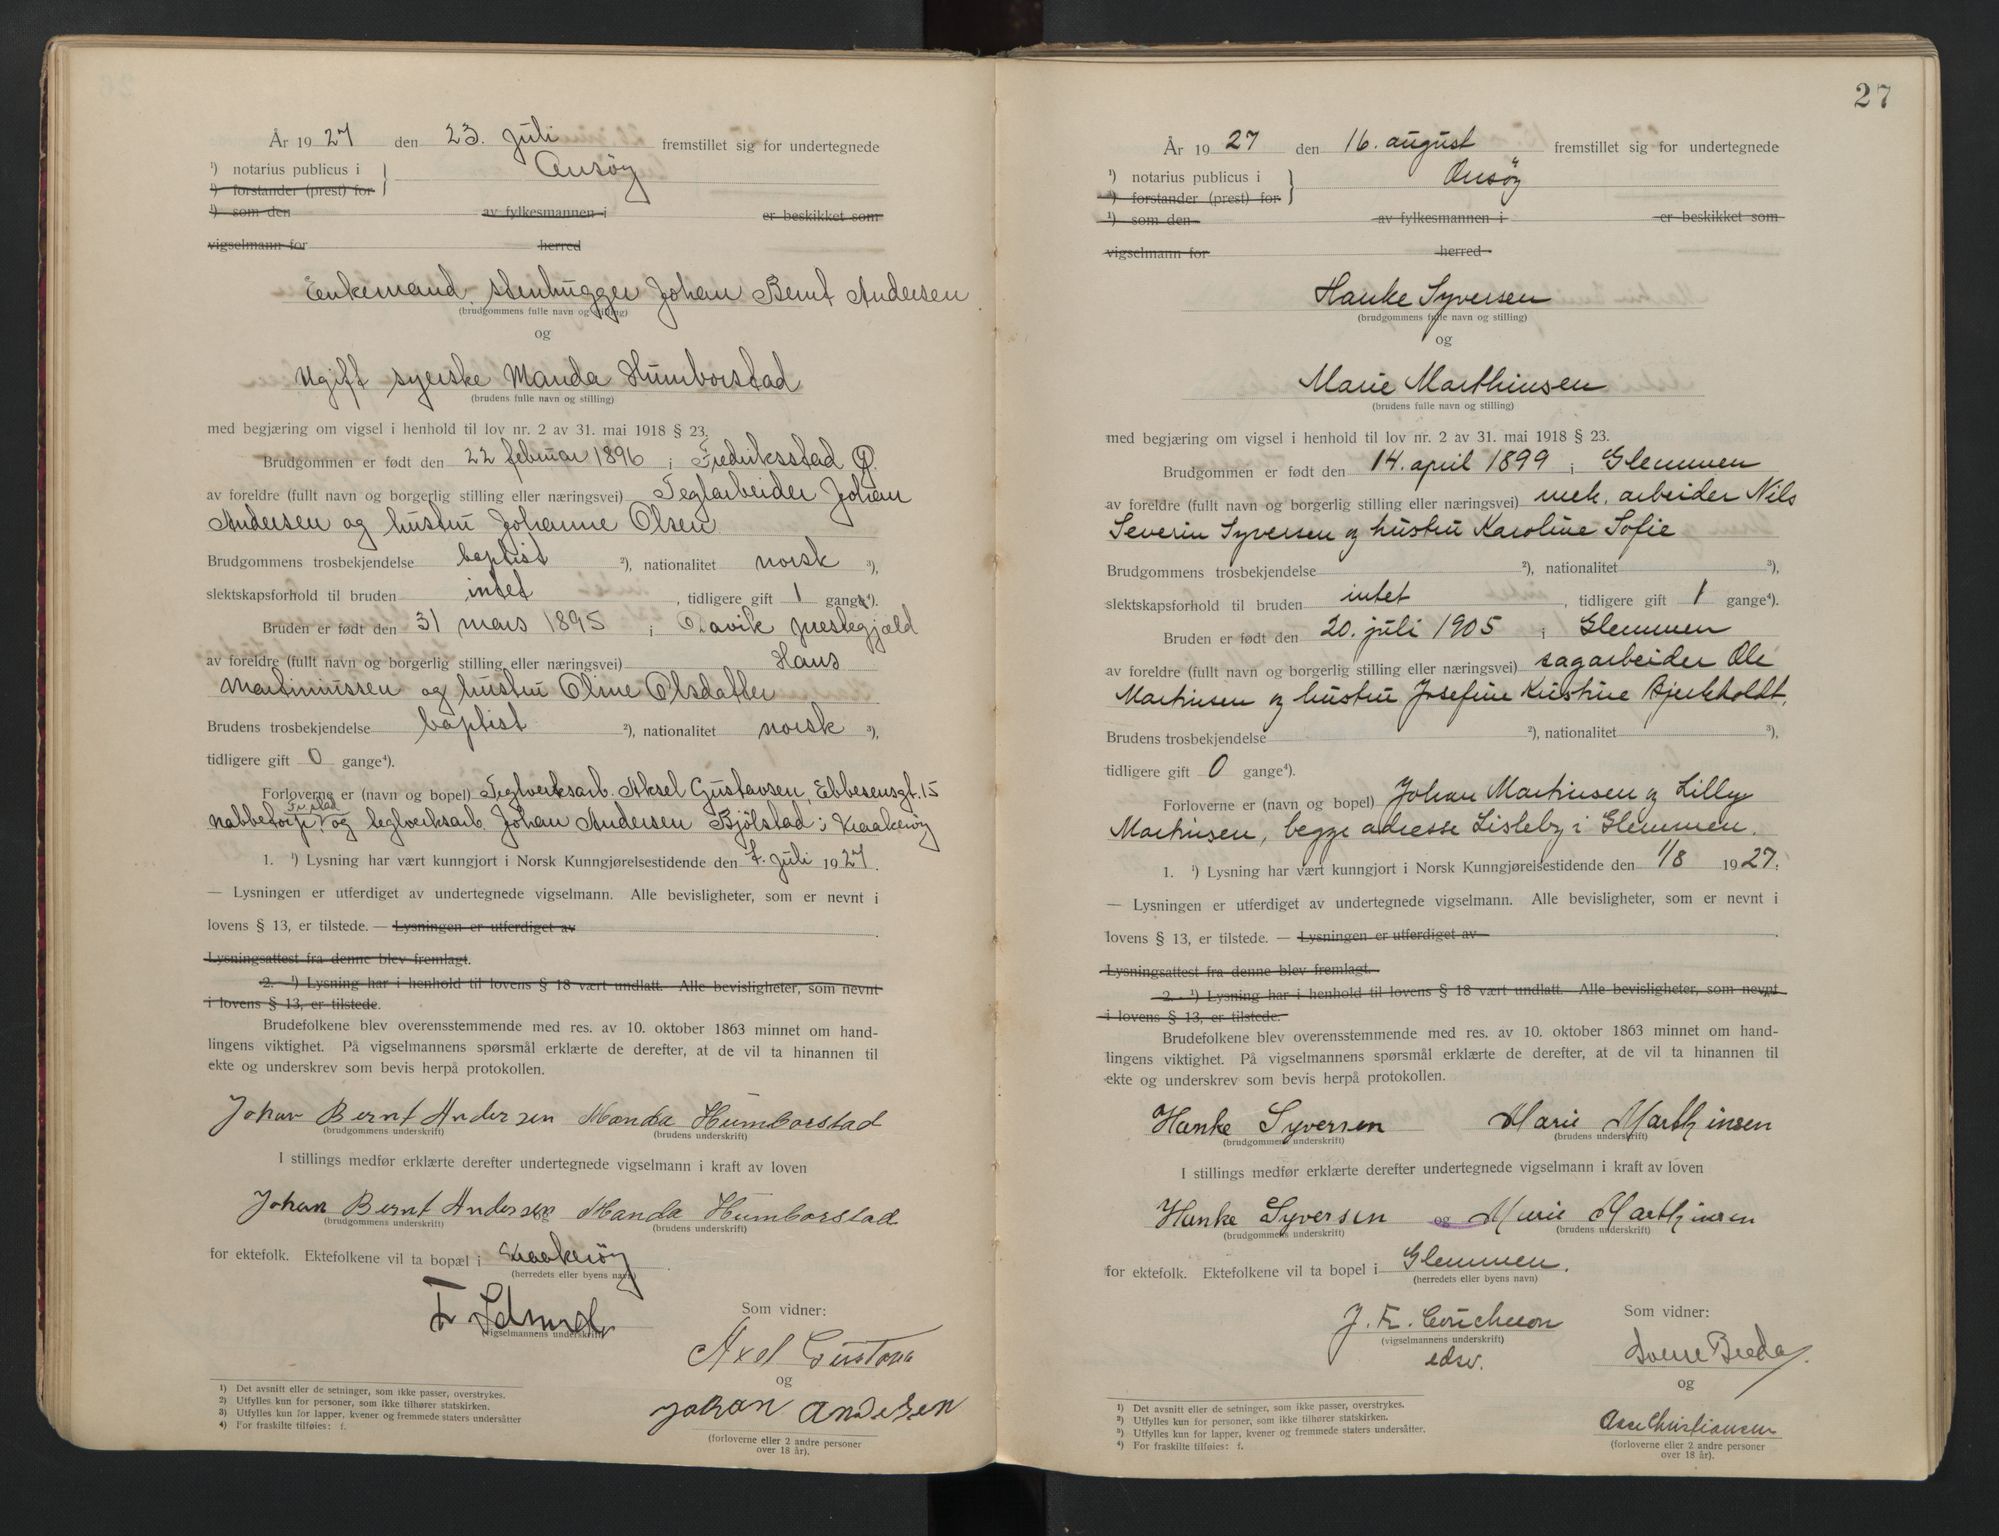 År 1927 den 23. juli fremstillet sig for undertegnede
¹) notarius publicus i Onsøy
¹) forstander (prest) for
¹) som den av fylkesmannen i er beskikket som
vigselmann for herred
Enkemand, stenhugger Johan Bernt Andersen
(brudgommens fulle navn og stilling)
og
Ugift syerske Manda Humborstad
(brudens fulle navn og stilling)
med begjæring om vigsel i henhold til lov nr. 2 av 31. mai 1918 § 23.
Brudgommen er født den 22 februar 1896 i Fredriksstad
av foreldre (fullt navn og borgerlig stilling eller næringsvei) Teglarbeider Johan
Andersen og hustru Johanne Olsen
Brudgommens trosbekjendelse baptist ²), nationalitet norsk ³),
slektskapsforhold til bruden intet, tidligere gift 1 gange⁴).
Bruden er født den 31 mars 1895 i Davik prestegjæld
av foreldre (fullt navn og borgerlig stilling eller næringsvei) Hans
Martiniussen og hustru Oline Olsdatter
Brudens trosbekjendelse baptist ²), nationalitet norsk ³),
tidligere gift 0 gange⁴).
Forloverne er (navn og bopel) Teglverksarb. Aksel Gustavsen, Ebbesensgt. 15
Fr.stad
nabbetorp og teglverksarb. Johan Andersen Bjölstad i Kraakerøy
1. ¹) Lysning har vært kunngjort i Norsk Kunngjørelsestidende den 7. juli 1927.
— Lysningen er utferdiget av undertegnede vigselmann. Alle bevisligheter, som er nevnt i
lovens § 13, er tilstede. — Lysningen er utferdiget av
Lysningsattest fra denne blev fremlagt.
2. ¹) Lysning har i henhold til lovens § 18 vært undlatt. Alle bevisligheter, som nevnt
i lovens § 13, er tilstede.
Brudefolkene blev overensstemmende med res. av 10. oktober 1863 minnet om hand-
lingens viktighet. På vigselmannens spørsmål erklærte de derefter, at de vil ta hinannen til
ekte og underskrev som bevis herpå protokollen.
Johan Bernt Andersen Manda Humborstad
(brudgommens underskrift) (brudens underskrift)
I stillings medfør erklærte derefter undertegnede vigselmann i kraft av loven
Johan Bernt Andersen og Manda Humborstad
(brudgommens underskrift) (brudens underskrift)
for ektefolk. Ektefolkene vil ta bopæl i Kraakerøy
(herredets eller byens navn)
(vigselmannens underskrift)
Som vidner:
Axel Gustavs
og
Johan Andersen
(forloverne eller 2 andre personer
over 18 år).
1) Det avsnitt eller de setninger, som ikke passer, overstrykes.
2) Utfylles kun for personer, som ikke tilhører statskirken.
3) Utfylles kun for lapper, kvener og fremmede staters undersåtter
4) For fraskilte tilføies: f.
27
År 1927 den 16. august fremstillet sig for undertegnede
¹) notarius publicus i Onsøy
¹) forstander (prest) for
¹) som den av fylkesmannen i er beskikket som
vigselmann for herred
Hanke Syversen
(brudgommens fulle navn og stilling)
og
Marie Marthinsen
(brudens fulle navn og stilling)
med begjæring om vigsel i henhold til lov nr. 2 av 31. mai 1918 § 23.
Brudgommen er født den 14. april 1899 i Glemmen
av foreldre (fullt navn og borgerlig stilling eller næringsvei) mek. arbeider Nils
Severin Syversen og hustru Karoline Sofie
Brudgommens trosbekjendelse ²), nationalitet ³),
slektskapsforhold til bruden intet, tidligere gift 1 gange⁴).
Bruden er født den 20. juli 1905 i Glemmen
av foreldre (fullt navn og borgerlig stilling eller næringsvei) sagarbeider Ole
Martinsen og hustru Josefine Kristine Bjerkholdt,
Brudens trosbekjendelse ²), nationalitet ³),
tidligere gift 0 gange⁴).
Forloverne er (navn og bopel) Johan Martinsen og Lilly
Martinsen, begge adresse Lisleby i Glemmen.
1. ¹) Lysning har vært kunngjort i Norsk Kunngjørelsestidende den 1/8 1927.
— Lysningen er utferdiget av undertegnede vigselmann. Alle bevisligheter, som er nevnt i
lovens § 13, er tilstede. — Lysningen er utferdiget av
Lysningsattest fra denne blev fremlagt.
2. ¹) Lysning har i henhold til lovens § 18 vært undlatt. Alle bevisligheter, som nevnt
i lovens § 13, er tilstede.
Brudefolkene blev overensstemmende med res. av 10. oktober 1863 minnet om hand-
lingens viktighet. På vigselmannens spørsmål erklærte de derefter, at de vil ta hinannen til
ekte og underskrev som bevis herpå protokollen.
Hanke Syversen Marie Marthinsen
(brudgommens underskrift) (brudens underskrift)
I stillings medfør erklærte derefter undertegnede vigselmann i kraft av loven
Hanke Syversen og Marie Marthinsen
(brudgommens underskrift) (brudens underskrift)
for ektefolk. Ektefolkene vil ta bopel i Glemmen.
(herredets eller byens navn)
J. E.
(vigselmannens underskrift)
edsv.
Som vidner:
Sverre Breda
og
Christiansen
(forloverne eller 2 andre personer
over 18 år).
¹) Det avsnitt eller de setninger, som ikke passer, overstrykes.
²) Utfylles kun for personer, som ikke tilhører statskirken.
³) Utfylles kun for lapper, kvener og fremmede staters undersåtter.
⁴) For fraskilte tilføies: f.